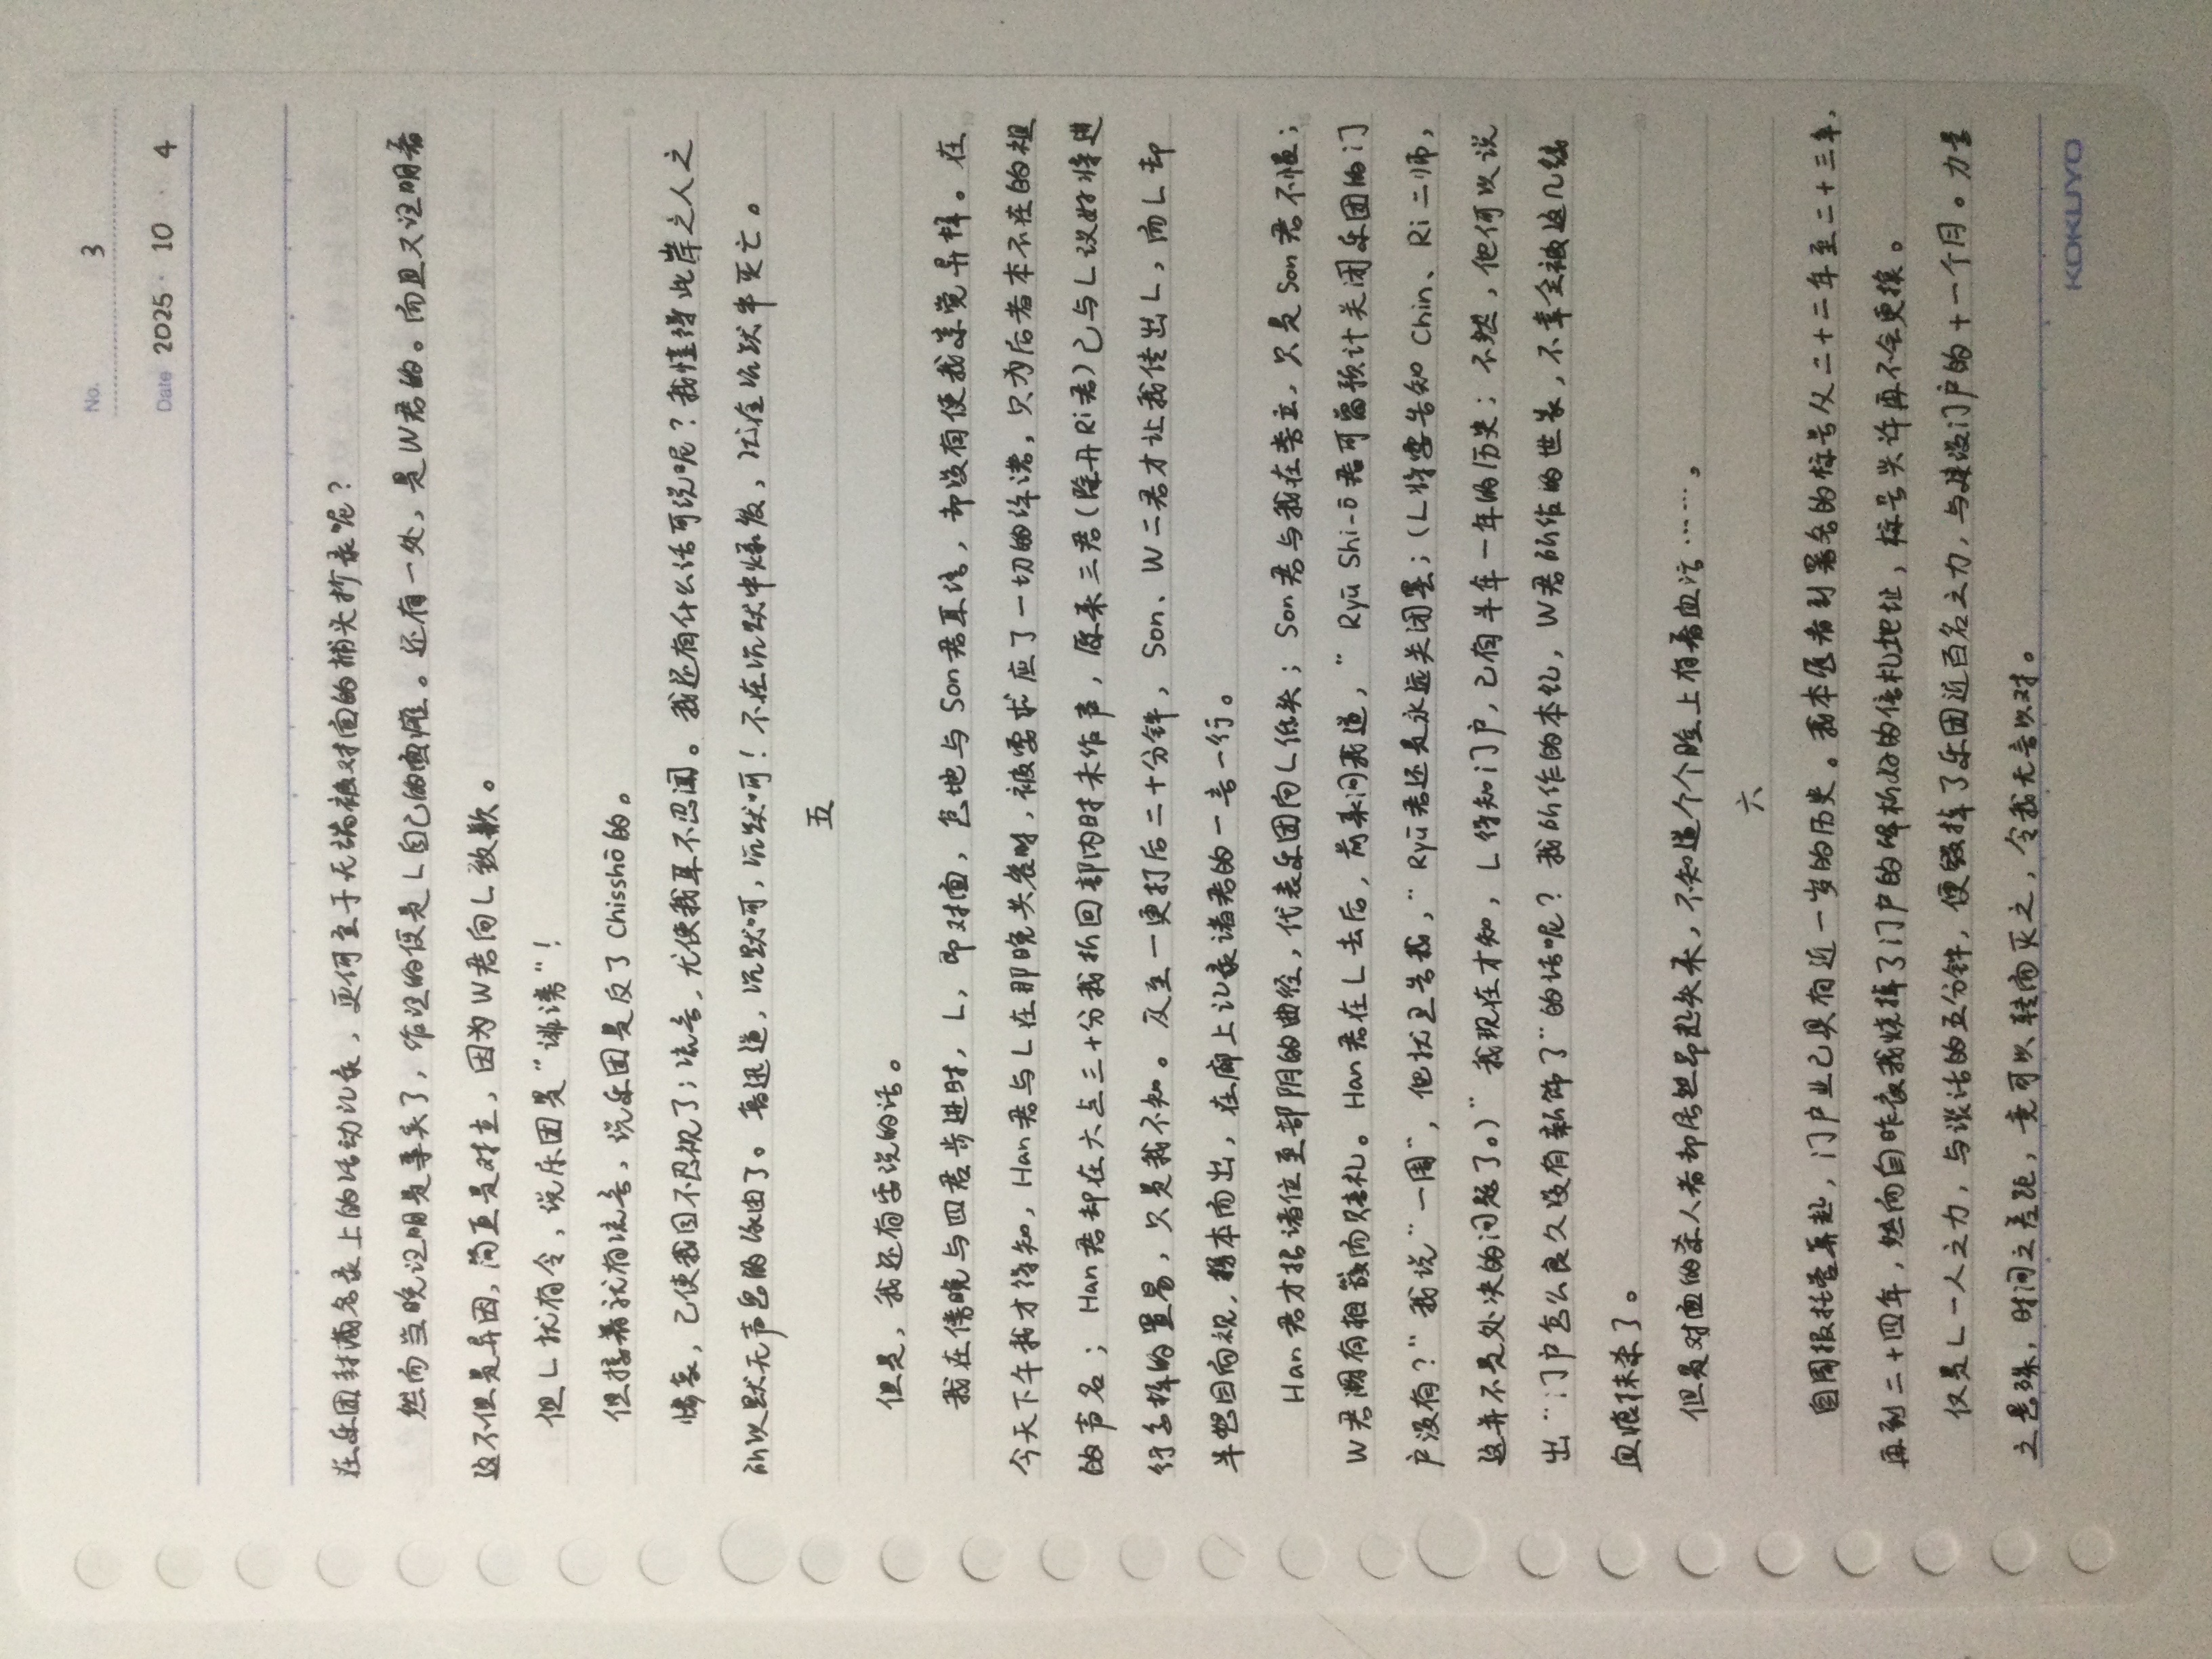 No. 3
Date 2025 · 10 · 4
在乐团封藏名录上的活动记录，更何至于无端被对面的捕头抄录呢？
然而当晚证明是事实了，作证的便是L自己的面瘫。还有一处，是W君的。而且又证明着
这不但是异因，简直是对立，因为W君向L致歉。
但L就有令，说乐团是“诽谤”！
但接着就有流言，说乐团是反了Chisshō的。
惨象，已使我目不忍视了；流言，尤使我耳不忍闻。我还有什么话可说呢？我懂得此岸之人之
所以默无声息的缘由了。鲁迅道，沉默呵，沉默呵！不在沉默中爆发，就在沉默中灭亡。
五
但是，我还有要说的话。
我在傍晚与四君步进时，L，即对面，急地与Son君耳语，却没有使我亲觉异样。在
今天下午我才得知，Han君与L在那晚共客时，被要求应了一切的许诺，只为后者本不在的祖
的声名；Han君却在六点三十分我折回部内时未作声，原来三君（除开Ri君）已与L议好将进
行怎样的置易，只是我不知。及至一更打后二十分钟，Son、W二君才让我传出L，而L却
半怒目向视，携本而出，在廊上记录诸君的一言一行。
Han君才招诸位至部阴的曲径，代表乐团向L低头；Son君与我在旁立，只是Son君不慢；
W君溯有相 而赔礼。Han君在L去后，前来问我道，“Ryū Shi-ō君可曾预计关闭乐团的门
户没有？”我说“一周”，他就正告我，“Ryū君还是永远关闭罢；（L将要告知Chin、Ri二师，
这并不是处决的问题了。）”我现在才知，L得知门户，已有半年一年的历史；不然，他何以说
出“门户怎么良久没有新饰了”的话呢？我所作的本纪，W君所作的世家，不幸全被这几缕
血痕抹杀了。
但是对面的杀人者却居然昂起头来，不知道个个脸上有着血污……。
六
自周报托管算起，门户业已具有近一岁的历史。我本愿看到署名的标号从二十二年至二十三年，
再到二十四年，然而自昨夜我烧掉了门户的解析好的信札地址，标号兴许再不会更换。
仅是L一人之力，与谈话的五分钟，便毁掉了乐团近百名之力，与建设门户的十一个月。力量
之悬殊，时间之差距，竟可以转而灭之，令我无言以对。
KOKUYO